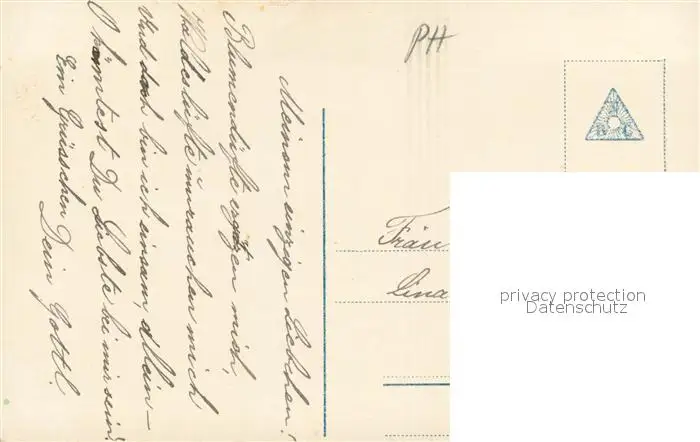 Meinem einzigen Liebchen!
Blumendüfte wogen mich,
Waldeslüfte umrauschen mich
Und doch bin ich einsam, allein –
O könntest Du Liebste bei mir sein!
Ein Grüsschen Dein Gottl.
PH
Fräu
Lina
privacy protection
Datenschutz